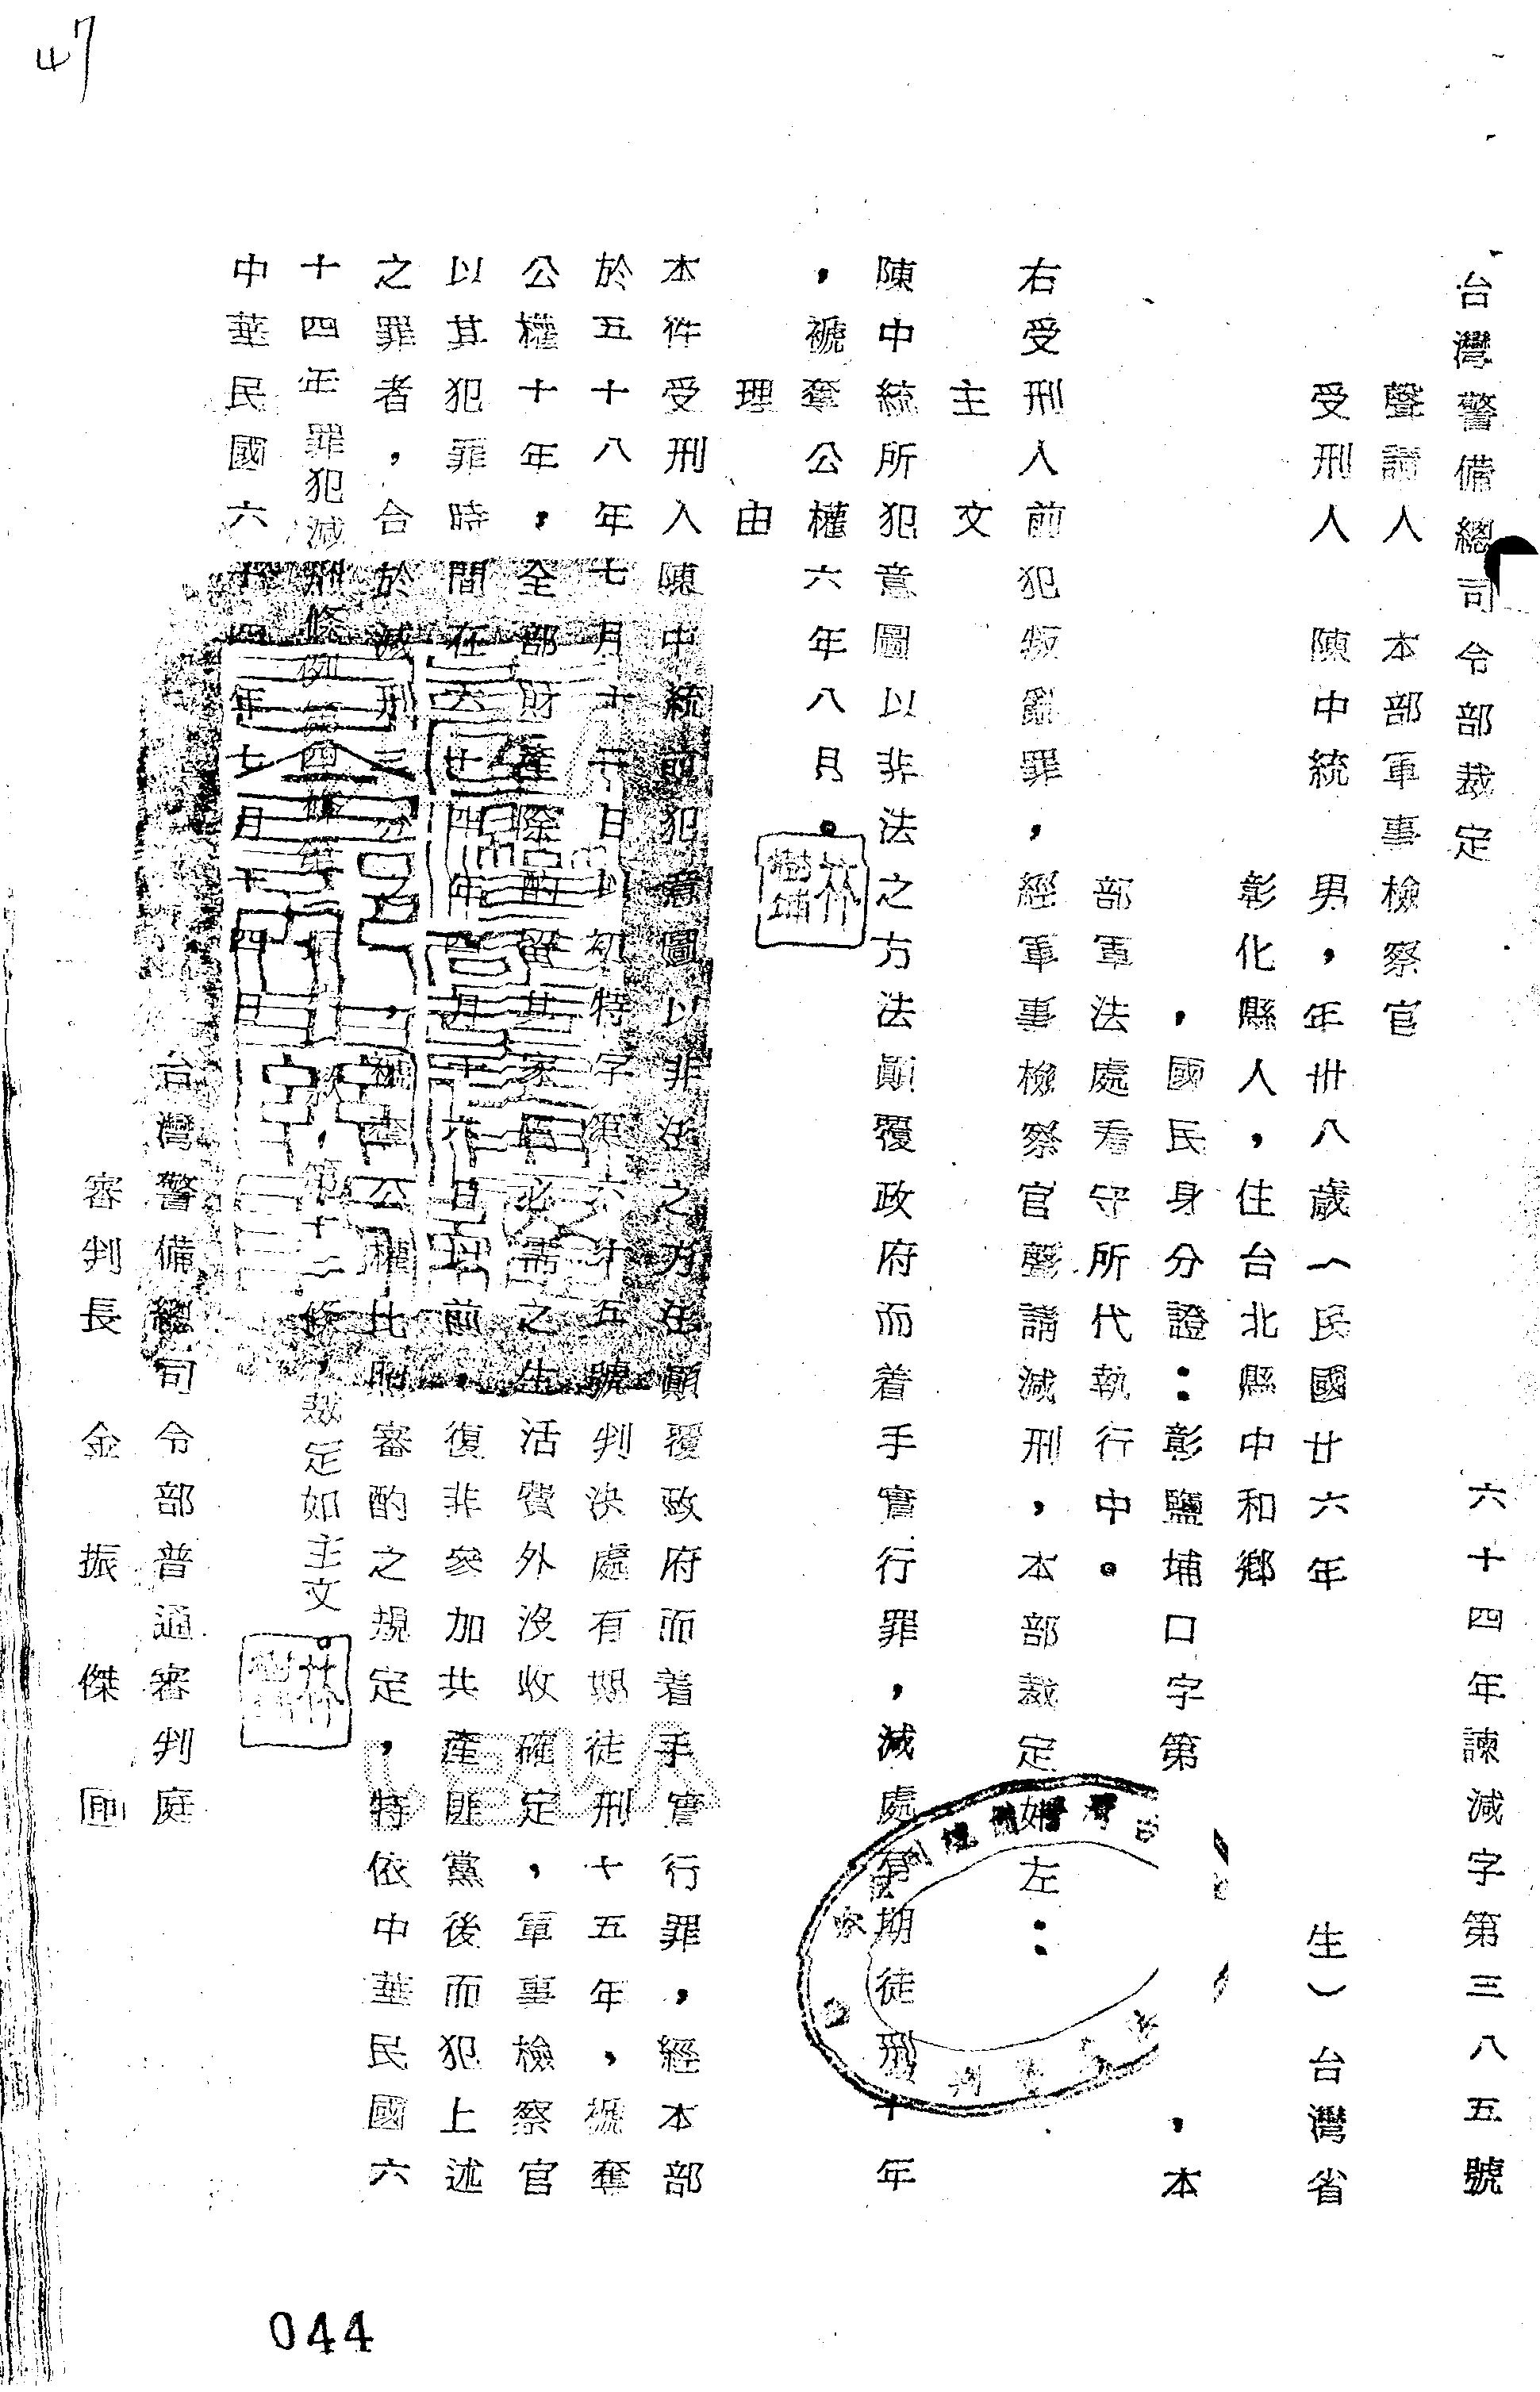 47
台灣警備總司令部裁定
六十四年諫減字第三八五號
聲請人 本部軍事檢察官
受刑人 陳中統 男，年卅八歲（民國廿六年 生）台灣省
彰化縣人，住台北縣中和鄉
，國民身分證：彰鹽埔口字第 ，本
部軍法處看守所代執行中。
右受刑人前犯叛亂罪，經軍事檢察官聲請減刑，本部裁定如左：
主文
陳中統所犯意圖以非法之方法顛覆政府而着手實行罪，減處有期徒刑十年
，褫奪公權六年八月。
林樹埔
理由
本件受刑人陳中統前犯意圖以非法之方法顛覆政府而着手實行罪，經本部
於五十八年七月十二日以初特字第六十五號判決處有期徒刑十五年，褫奪
公權十年，全部財產除酌留其家屬必需之生活費外沒收確定，軍事檢察官
以其犯罪時間在六十四年四月十六日以前，復非參加共產匪黨後而犯上述
之罪者，合於減刑三分之一，褫奪公權比照審酌之規定，特依中華民國六
十四年罪犯減刑條例第四條第一項 款，第十二條，裁定如主文。
中華民國六十四年七月十四日
台灣警備總司令部普通審判庭
審判長 金振傑
044